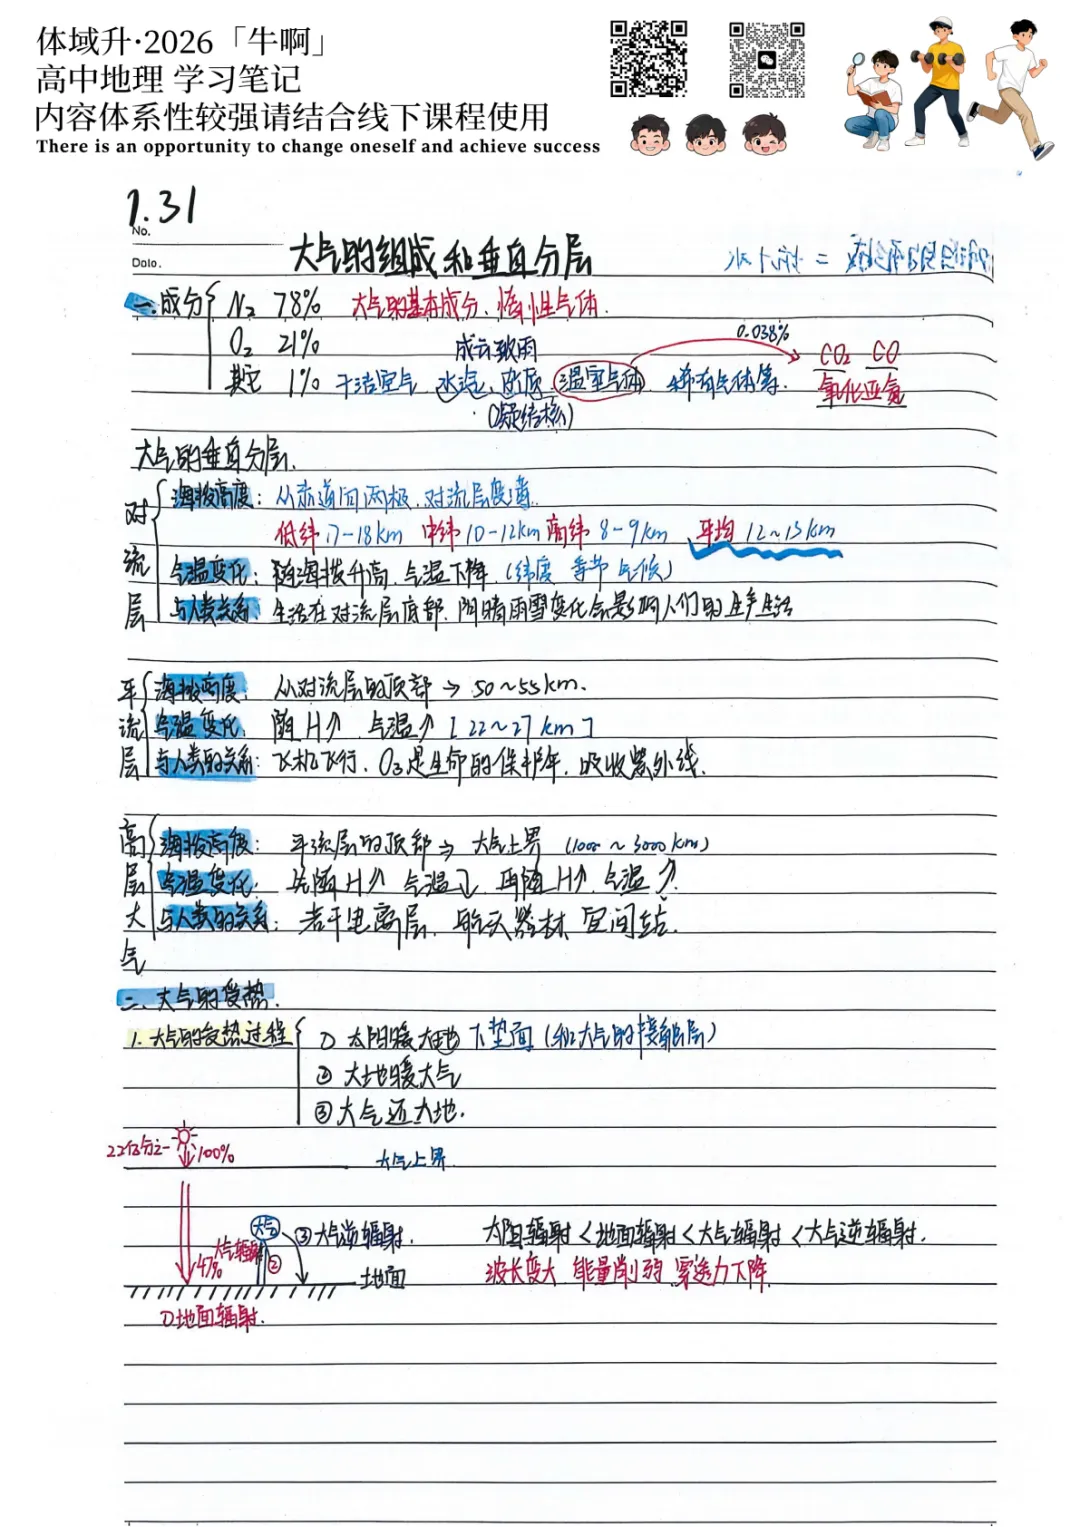 体域升·2026「牛啊」
高中地理 学习笔记
内容体系性较强请结合线下课程使用
There is an opportunity to change oneself and achieve success
1.31
No.
Date.
大气的组成和垂直分层
一.成分 N₂ 78% 大气的基本成分、惰性气体.
O₂ 21% 成云致雨 0.038%
其它 1% 干洁空气、水汽、杂质 温室气体 稀有气体等. CO₂ CO
(凝结核) 氧化亚氮
大气的垂直分层.
对流层
海拔高度: 从赤道向两极,对流层变薄.
低纬 17-18km 中纬 10-12km 高纬 8-9km 平均 12~13km
气温变化: 随海拔升高,气温下降.(纬度 季节 气候)
与人类关系: 生活在对流层底部.阴晴雨雪变化会影响人们的生产生活
平流层
海拔高度: 从对流层的顶部→50~55km.
气温变化: 随H↑ 气温↑ [22~27km]
与人类的关系: 飞机飞行. O₃是生命的保护伞.吸收紫外线.
高层大气
海拔高度: 平流层的顶部→大气上界 (2000~3000km)
气温变化: 先随H↑ 气温↓ 再随H↑ 气温↑.
与人类的关系: 若干电离层.航天器材 空间站.
二.大气的受热.
1.大气的受热过程 ① 太阳暖大地 下垫面(和大气的接触层)
② 大地暖大气
③ 大气还大地.
22亿分之一 100% 大气上界
大气 ③大气逆辐射. 太阳辐射<地面辐射<大气辐射<大气逆辐射.
47% 大气辐射 ② 地面 波长变大 能量削弱 穿透力下降
①地面辐射.